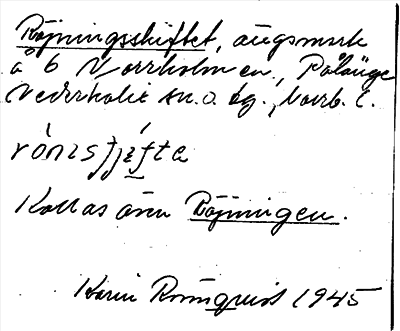 Röjningsskiftet, ängsmark
å 6 Norrholmen, Pålänge
Nederkalix sn. o. tg., Norrb. l.
rònsjifta
Kallas även Röjningen.
Karin Ronnquist 1945